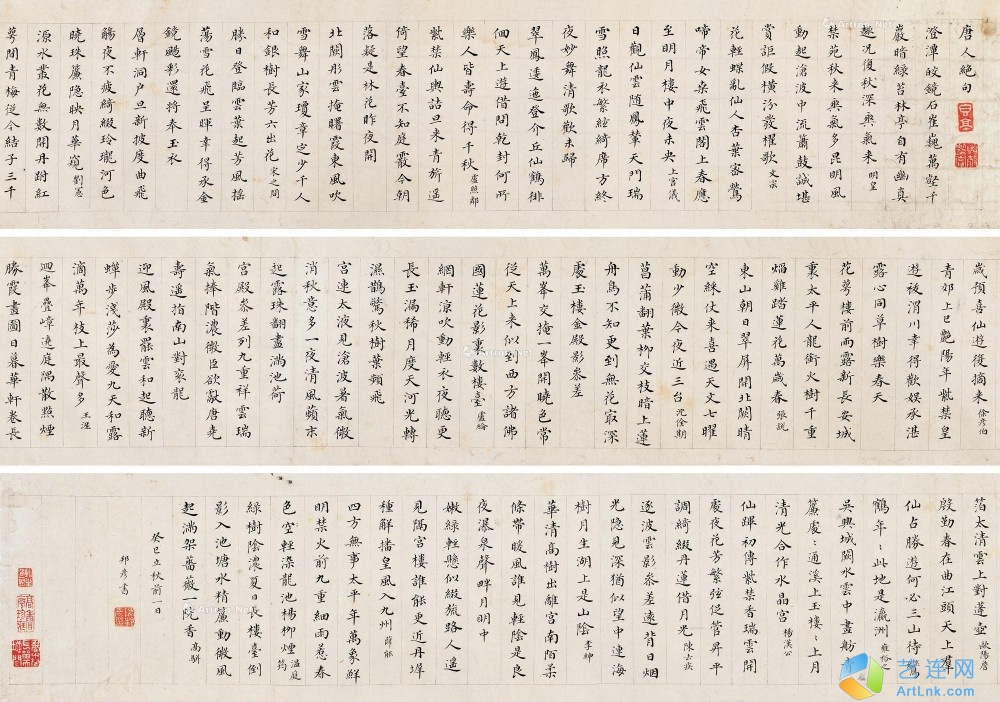 唐人絕句
澄潭皎鏡石崔巍萬壑千
巖暗綠苔林亭自有幽真
趣况復秋深爽氣来 明皇
禁苑秋来爽氣多昆明風
動起滄波中流簫鼓誠堪
賞詎假橫汾發櫂歌 文宗
花輕蝶亂仙人杏葉密鶯
啼帝女桒飛雲閣上春應
至明月樓中夜未央 上官儀
日觀仙雲随鳳輦天門瑞
雪照龍衣繁絃綺席方終
夜妙舞清歌歡未歸
翠鳳逶迤登介丘仙鶴徘
佪天上遊借問乾封何所
樂人皆壽命得千秋 盧照鄰
紫禁仙輿詰旦来青旂遥
倚望春臺不知庭霰今朝
落疑是林花昨夜開
北闕彤雲掩曙霞東風吹
雪舞山家瓊章定少千人
和銀樹長芳六出花 宋之問
勝日登臨雲葉起芳風揺
蕩雪花飛呈暉幸得承金
鏡颺彩還將奉玉衣
層軒洞户旦新披度曲飛
觴夜不疲綺綴玲瓏河色
曉珠簾隱映月華窺 劉憲
源水叢花無數開丹跗紅
萼間青梅從今結子三千
歲預喜仙遊復摘来 徐彦伯
青郊上巳艷陽年紫禁皇
遊祓渭川幸得歡娱承湛
露心同草樹樂春天
花萼樓前雨露新長安城
裏太平人龍銜火樹千重
燄雞踏蓮花萬歲春 張説
東山朝日翠屏開北闕晴
空綵仗来喜遇天文七曜
動少微今夜近三台 沈佺期
菖蒲翻葉柳交枝暗上蓮
舟鳥不知更到無花寂深
處玉樓金殿影叅差
萬峯交掩一峯開曉色常
從天上来似到西方諸佛
國蓮花影裏數樓臺 盧綸
網軒涼吹動輕衣夜聽更
長玉漏稀月度天河光轉
濕鵲驚秋樹葉頻飛
宫連太液見滄波暑氣微
消秋意多一夜清風蘋末
起露珠翻盡滿池荷
宫殿叅差列九重祥雲瑞
氣捧階濃微臣欲獻唐堯
壽遥指南山對衮龍
迎風殿裏罷雲和起聽新
蟬步淺莎為愛九天和露
滴萬年枝上最聲多 王涯
迥峯疊嶂遶庭隅散點煙
勝霞畫圖日暮華軒卷長
箔太清雲上對蓬壺 歐陽詹
殷勤春在曲江頭天上羣
仙占勝遊何必三山待鸞
鶴年〻此地是瀛洲 雍裕之
吳興城闕水雲中畫舫
簾處〻通溪上玉樓〻上月
清光合作水晶宫 楊漢公
仙蹕初傳紫禁香瑞雲開
處夜花芳繁弦促管昇平
調綺綴丹蓮借月光 陳去疾
逐波雲影叅差遠背日烟
光隐見深猶似望中連海
樹月生湖上是山陰 李紳
華清高樹出離宫南陌柔
條帶暖風誰見輕陰是良
夜瀑泉聲畔月明中
嫩綠輕懸似綴旒路人遥
見隔宫樓誰能更近丹墀
種解播皇風入九州 薛能
四方無事太平年萬象鮮
明禁火前九重細雨惹春
色空輕染龍池楊柳煙 温庭筠
綠樹陰濃夏日長樓臺倒
影入池塘水精簾動微風
起滿架薔薇一院香 高駢
癸巳立秋前一日
邦彥書
艺连网
ArtLnk.com